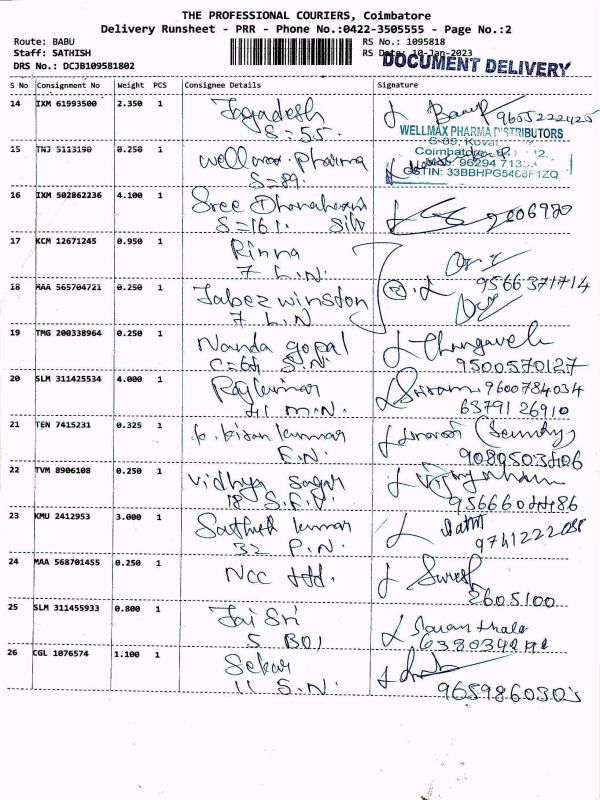 THE PROFESSIONAL COURIERS, Coimbatore
Delivery Runsheet - PRR - Phone No.:0422-3505555 - Page No.:2
Route: BABU
RS No.: 1095818
Staff: SATHISH
RS Date: 10-Jan-2023
DRS No.: DCJB109581802
DOCUMENT DELIVERY
S No Consignment No Weight PCS Consignee Details Signature
14 IXM 61993500 2.350 1 Jagadesh
S=55. 9655222425
WELLMAX PHARMA DISTRIBUTORS
15 TNJ 5113190 0.250 1 wellmax pharma
S=89.
GSTIN: 33BBHPG5468F1ZQ
16 IXM 502862236 4.100 1 Sree
S=161. 2606920
17 KCM 12671245 0.950 1 Rinna
7 L.N.
18 MAA 565704721 0.250 1 Jabez winston 9566371714
7 L.N
19 TMG 200338964 0.250 1 Nanda gopal
S.N. 9500570127
20 SLM 311425534 4.000 1 Rajkumar Sriram 9600784034
41 m.N. 6379126910
21 TEN 7415231 0.325 1 p. kiran kummar (Security)
F.N.
22 TVM 8906108 0.250 1 Vidhya sagar
18
23 KMU 2412953 3.000 1 Sathish kumar
32 P.N.
24 MAA 568701455 0.250 1 NCC Suresh
2605100
25 SLM 311455933 0.800 1 Jai Sri
26 CGL 1076574 1.100 1 Sekar
11 S.N.